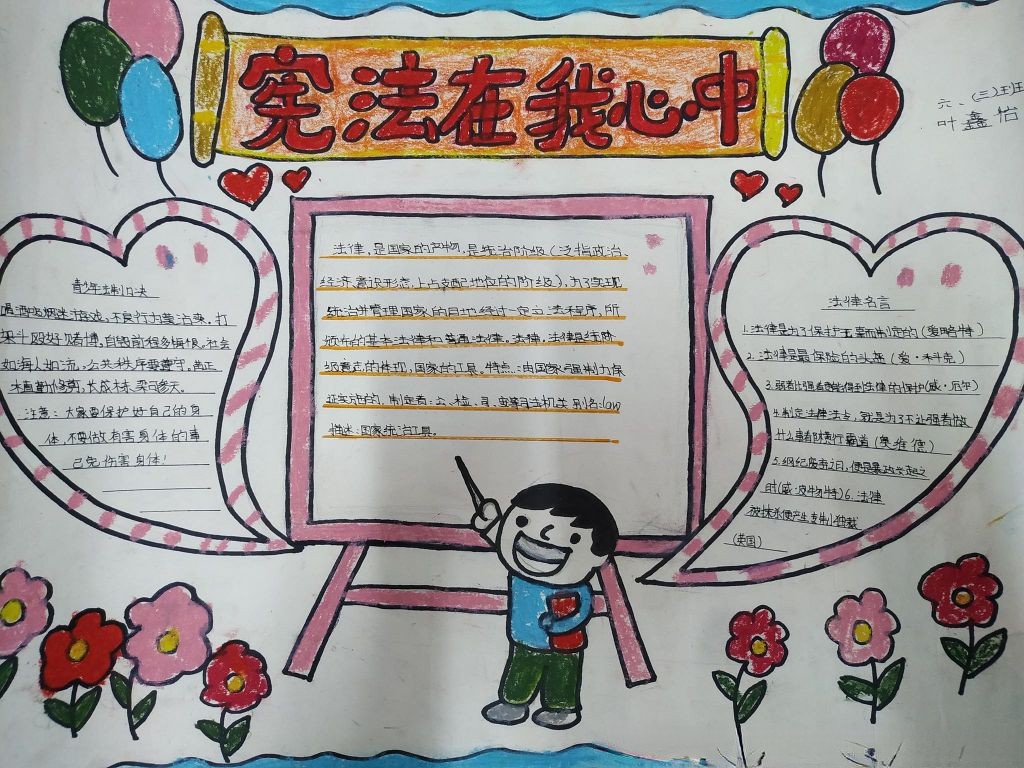 宪法在我心中
六、(三)班
叶鑫怡
青少年法制口决
遇酒吧烟迷游戏,不良行为莫沾来。打
架斗殴好赌博,自毁前程多悔恨。社会
如海人如流,公共秩序要遵守。
大材,
注意:大家要保护好自己的身
体,不要做有害身体的事
己免伤害身体!
法律,是国家的产物,是统治阶级(泛指政治、
经济、意识形态上占支配地位的阶级),为了实现
统治并管理国家的目地经过一定立法程序,所
颁布的基本法律和普通法律。法律,法律是统阶
级意志的体现,国家的工具。特点:由国家强制力保
证实施的,制定者:立、检、司、
机关 别名:law
性述:国家统治工具。
法律名言
1.法律是为了保护无辜而制定的(爱略特)
2.法律是最保险的头盔(爱·科克)
3.弱者比强者更能得到法律的保护(威·厄尔)
4.制定法律法点,就是为了不让强者做
什么事都横行霸道(奥维德)
5.纲纪废弃之日,便是暴政兴起之
时(威·皮物特)6.法律
被抹杀便产生专制独裁
(英国)